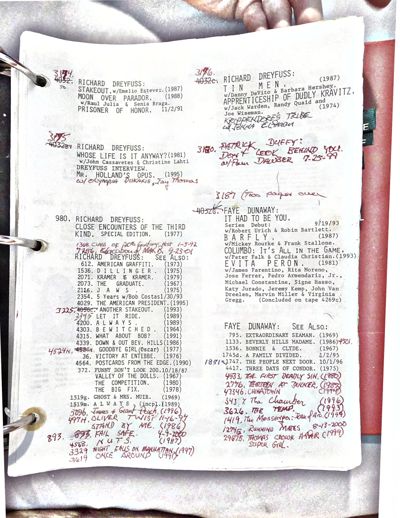 3174.
4032c.
RICHARD DREYFUSS:
STAKEOUT.w/Emilio Estevez.(1987)
MOON OVER PARADOR. (1988)
w/Raul Julia & Sonia Braga.
PRISONER OF HONOR. 11/2/91
3175
RICHARD DREYFUSS:
WHOSE LIFE IS IT ANYWAY?(1981)
w/John Cassavetes & Christine Lahti
DREYFUSS INTERVIEW.
MR. HOLLAND'S OPUS. (1995)
w/Olympia Dukakis, Jay Thomas
980. RICHARD DREYFUSS:
CLOSE ENCOUNTERS OF THE THIRD
KIND. SPECIAL EDITION. (1977)
RICHARD DREYFUSS: SEE ALSO:
612. AMERICAN GRAFFITI. (1973)
1536. DILLINGER. (1973)
2071. KRAMER & KRAMER. (1979)
2073. THE GRADUATE. (1967)
2116. JAWS (1975)
2354. 5 Years w/Bob Costas1/30/93
4029. THE AMERICAN PRESIDENT.(1995)
3225 ANOTHER STAKEOUT. (1993)
LET IT RIDE. (1989)
4200. ALWAYS. (1989)
4303. BEWITCHED. (1964)
4321. WHAT ABOUT BOB? (1991)
4339. DOWN & OUT BEV. HILLS (1986)
4524A. GOODBYE GIRL(Oscar) (1977)
36. VICTORY AT ENTEBBE. (1976)
4564. POSTCARDS FROM THE EDGE. (1990)
372. FUNNY DON'T LOOK 200.10/18/87
VALLEY OF THE DOLLS. (1967)
THE COMPETITION. (1980)
THE BIG FIX. (1978)
1519g. GHOST & MRS. MUIR. (1969)
1519a. ALWAYS. (inc).(1989)
OLIVER TWIST
STAND BY ME. (1986)
893. FAIL SAFE. 4-9-2000
NUTS. (1987)
3329 NIGHT FALLS ON MANHATTAN.(1997)
3619 ONCE AROUND (1991)
3176.
4032c.
RICHARD DREYFUSS:
TIN MEN. (1987)
w/Danny DeVito & Barbara Hershey.
APPRENTICESHIP OF DUDLY KRAVITZ.
w/Jack Warden, Randy Quaid and
Joe Wiseman. (1974)
KRIPPENDORF'S TRIBE
w/Jenna Elfman
3180. PATRICK DUFFY:
DON'T LOOK BEHIND YOU.
w/Pam Dawber 7-25-99
3187 (Two pages over
FAYE DUNAWAY:
IT HAD TO BE YOU.
Series Debut: 9/19/93
w/Robert Urich & Robin Bartlett.
BARFLY (1987)
w/Mickey Rourke & Frank Stallone.
COLUMBO: IT'S ALL IN THE GAME.
w/Peter Falk & Claudia Christian.(1993)
EVITA PERON. (1981)
w/James Farentino, Rita Moreno,
Jose Ferrer, Pedro Armendariz, Jr.,
Michael Constantine, Signe Hasso,
Katy Jurado, Jeremy Kemp, John Van
Dreelen, Marvin Miller & Virginia
Gregg. (Concluded on tape 4269c)
FAYE DUNAWAY: SEE ALSO:
795. EXTRAORDINARY SEAMAN. (1969)
1133. BEVERLY HILLS MADAME. (1986)
1536. BONNIE & CLYDE. (1967)
1745a. A FAMILY DIVIDED. 2/2/93
1747. THE PEOPLE NEXT DOOR. 10/1/96
4417. THREE DAYS OF CONDOR. (1975)
4433. THE FIRST DEADLY SIN. (1980)
CHINATOWN
543 The Chamber (1996)
3626. THE TEMP (1993)
RUNNING MATES 8-13-2000
THOMAS CROWN AFFAIR (1999)
SUPER GIRL.